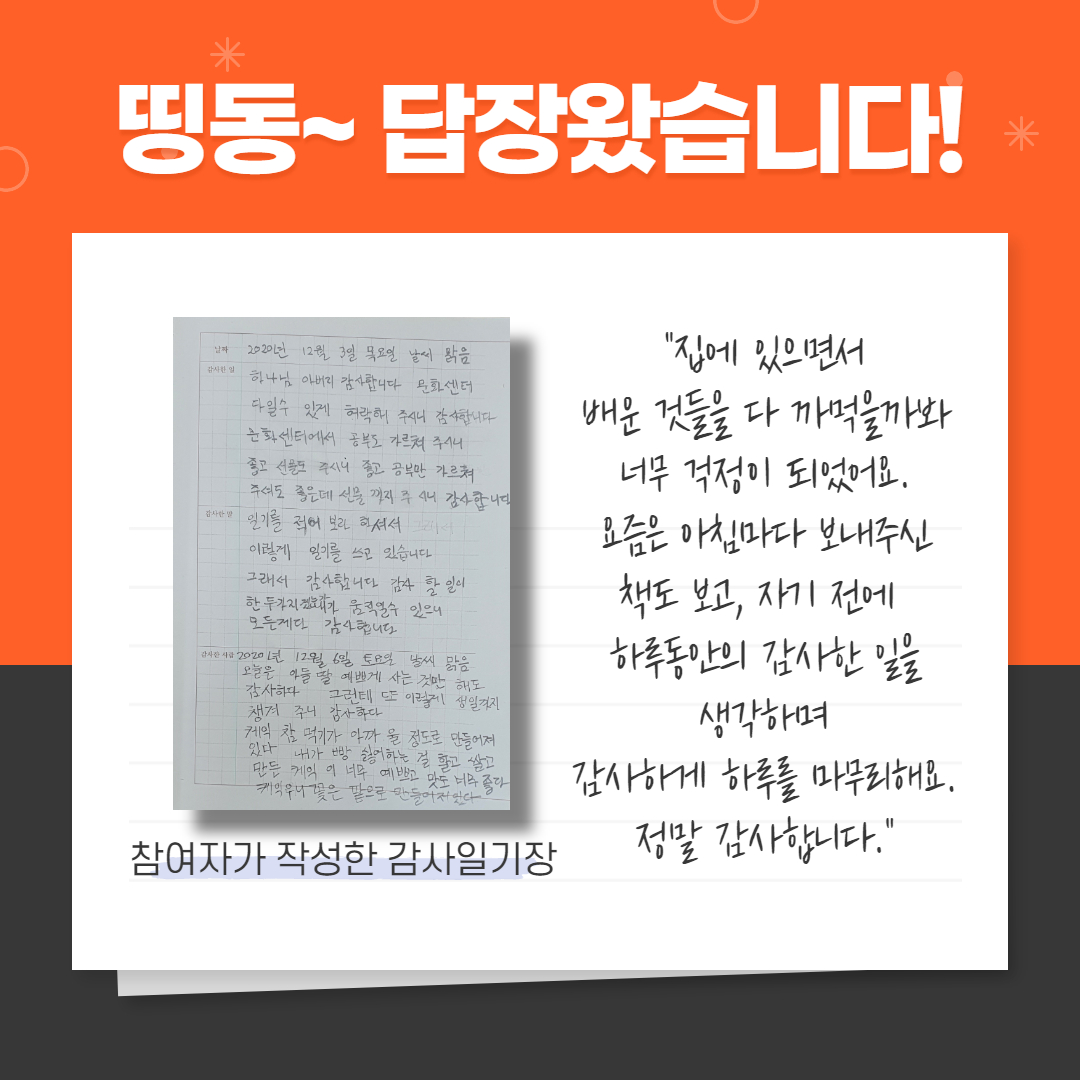 띵동~ 답장왔습니다!
날짜 2020년 12월 3일 목요일 날씨 맑음
감사한 일 하나님 아버지 감사합니다 문화센터
다일수 있게 허락하 주시니 감사합니다
문화센터에서 공부도 가르쳐 주시니
좋고 선물도 주시니 좋고 공부만 가르쳐
주셔도 좋은데 선물 까지 주 시니 감사합니다
감사한 말 일기를 적어 보라 하셔서
이렇게 일기를 쓰고 있습니다
그래서 감사합니다 감사 할 일이
한 두가지겠 내가 움직일수 있으니
모든게다 감사합니다
감사한 사람 2020년 12월 6일 토요일 날씨 맑음
오늘은 아들 딸 예쁘게 사는 것만 해도
감사하다 그런테 또또 이렇게 생일까지
챙겨 주니 감사하다
케익 참 먹기가 아까 울 정도로 만들어져
있다 내가 빵 싫어하는 걸 알고 쌀로
만든 케익 이 너무 예쁘고 맛도 너무 좋다
케익우에 꽃은 팥으로 만들어져있다
참여자가 작성한 감사일기장
"집에 있으면서
배운 것들을 다 까먹을까봐
너무 걱정이 되었어요.
요즘은 아침마다 보내주신
책도 보고, 자기 전에
하루동안의 감사한 일을
생각하며
감사하게 하루를 마무리해요.
정말 감사합니다."